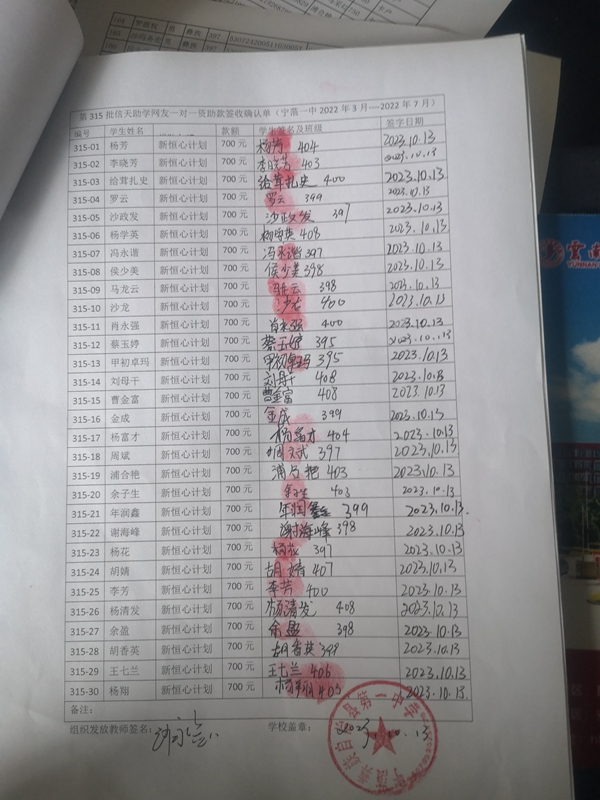 104 罗德权 男 彝族 397
第315批信天助学网友一对一资助款签收确认单（宁蒗一中2022年3月----2022年7月）
编号 学生姓名 款额 学生签名及班级 签字日期
315-01 杨芳 新恒心计划 700元 杨芳 404 2023.10.13
315-02 李晓芳 新恒心计划 700元 李晓芳 403 2023.10.13
315-03 给茸扎史 新恒心计划 700元 给茸扎史 400 2023.10.13
315-04 罗云 新恒心计划 700元 罗云 399 2023.10.13
315-05 沙政发 新恒心计划 700元 沙政发 397 2023.10.13
315-06 杨学英 新恒心计划 700元 杨学英 408 2023.10.13
315-07 冯永谐 新恒心计划 700元 冯永谐 397 2023.10.13
315-08 侯少美 新恒心计划 700元 侯少美 398 2023.10.13
315-09 马龙云 新恒心计划 700元 398 2023.10.13
315-10 沙龙 新恒心计划 700元 沙龙 400 2023.10.13
315-11 肖永强 新恒心计划 700元 肖永强 400 2023.10.13
315-12 蔡玉婷 新恒心计划 700元 蔡玉婷 395 2023.10.13
315-13 甲初卓玛 新恒心计划 700元 甲初卓玛 395 2023.10.13
315-14 刘母干 新恒心计划 700元 刘母干 408 2023.10.13
315-15 曹金富 新恒心计划 700元 曹金富 408 2023.10.13
315-16 金成 新恒心计划 700元 金成 399 2023.10.13
315-17 杨富才 新恒心计划 700元 杨富才 404 2023.10.13
315-18 周斌 新恒心计划 700元 周斌 397 2023.10.13
315-19 浦合艳 新恒心计划 700元 浦合艳 403 2023.10.13
315-20 余子生 新恒心计划 700元 余子生 403 2023.10.13
315-21 年润鑫 新恒心计划 700元 年润鑫 399 2023.10.13
315-22 谢海峰 新恒心计划 700元 谢海峰 398 2023.10.13
315-23 杨花 新恒心计划 700元 杨花 397 2023.10.13
315-24 胡婧 新恒心计划 700元 胡婧 407 2023.10.13
315-25 李芳 新恒心计划 700元 李芳 400 2023.10.13
315-26 杨清发 新恒心计划 700元 杨清发 408 2023.10.13
315-27 余盈 新恒心计划 700元 余盈 398 2023.10.13
315-28 胡香英 新恒心计划 700元 胡香英 398 2023.10.13
315-29 王七兰 新恒心计划 700元 王七兰 406 2023.10.13
315-30 杨翔 新恒心计划 700元 杨翔 405 2023.10.13
备注：
组织发放教师签名： 学校盖章： 2023.10.13
自治县第一中学
云南